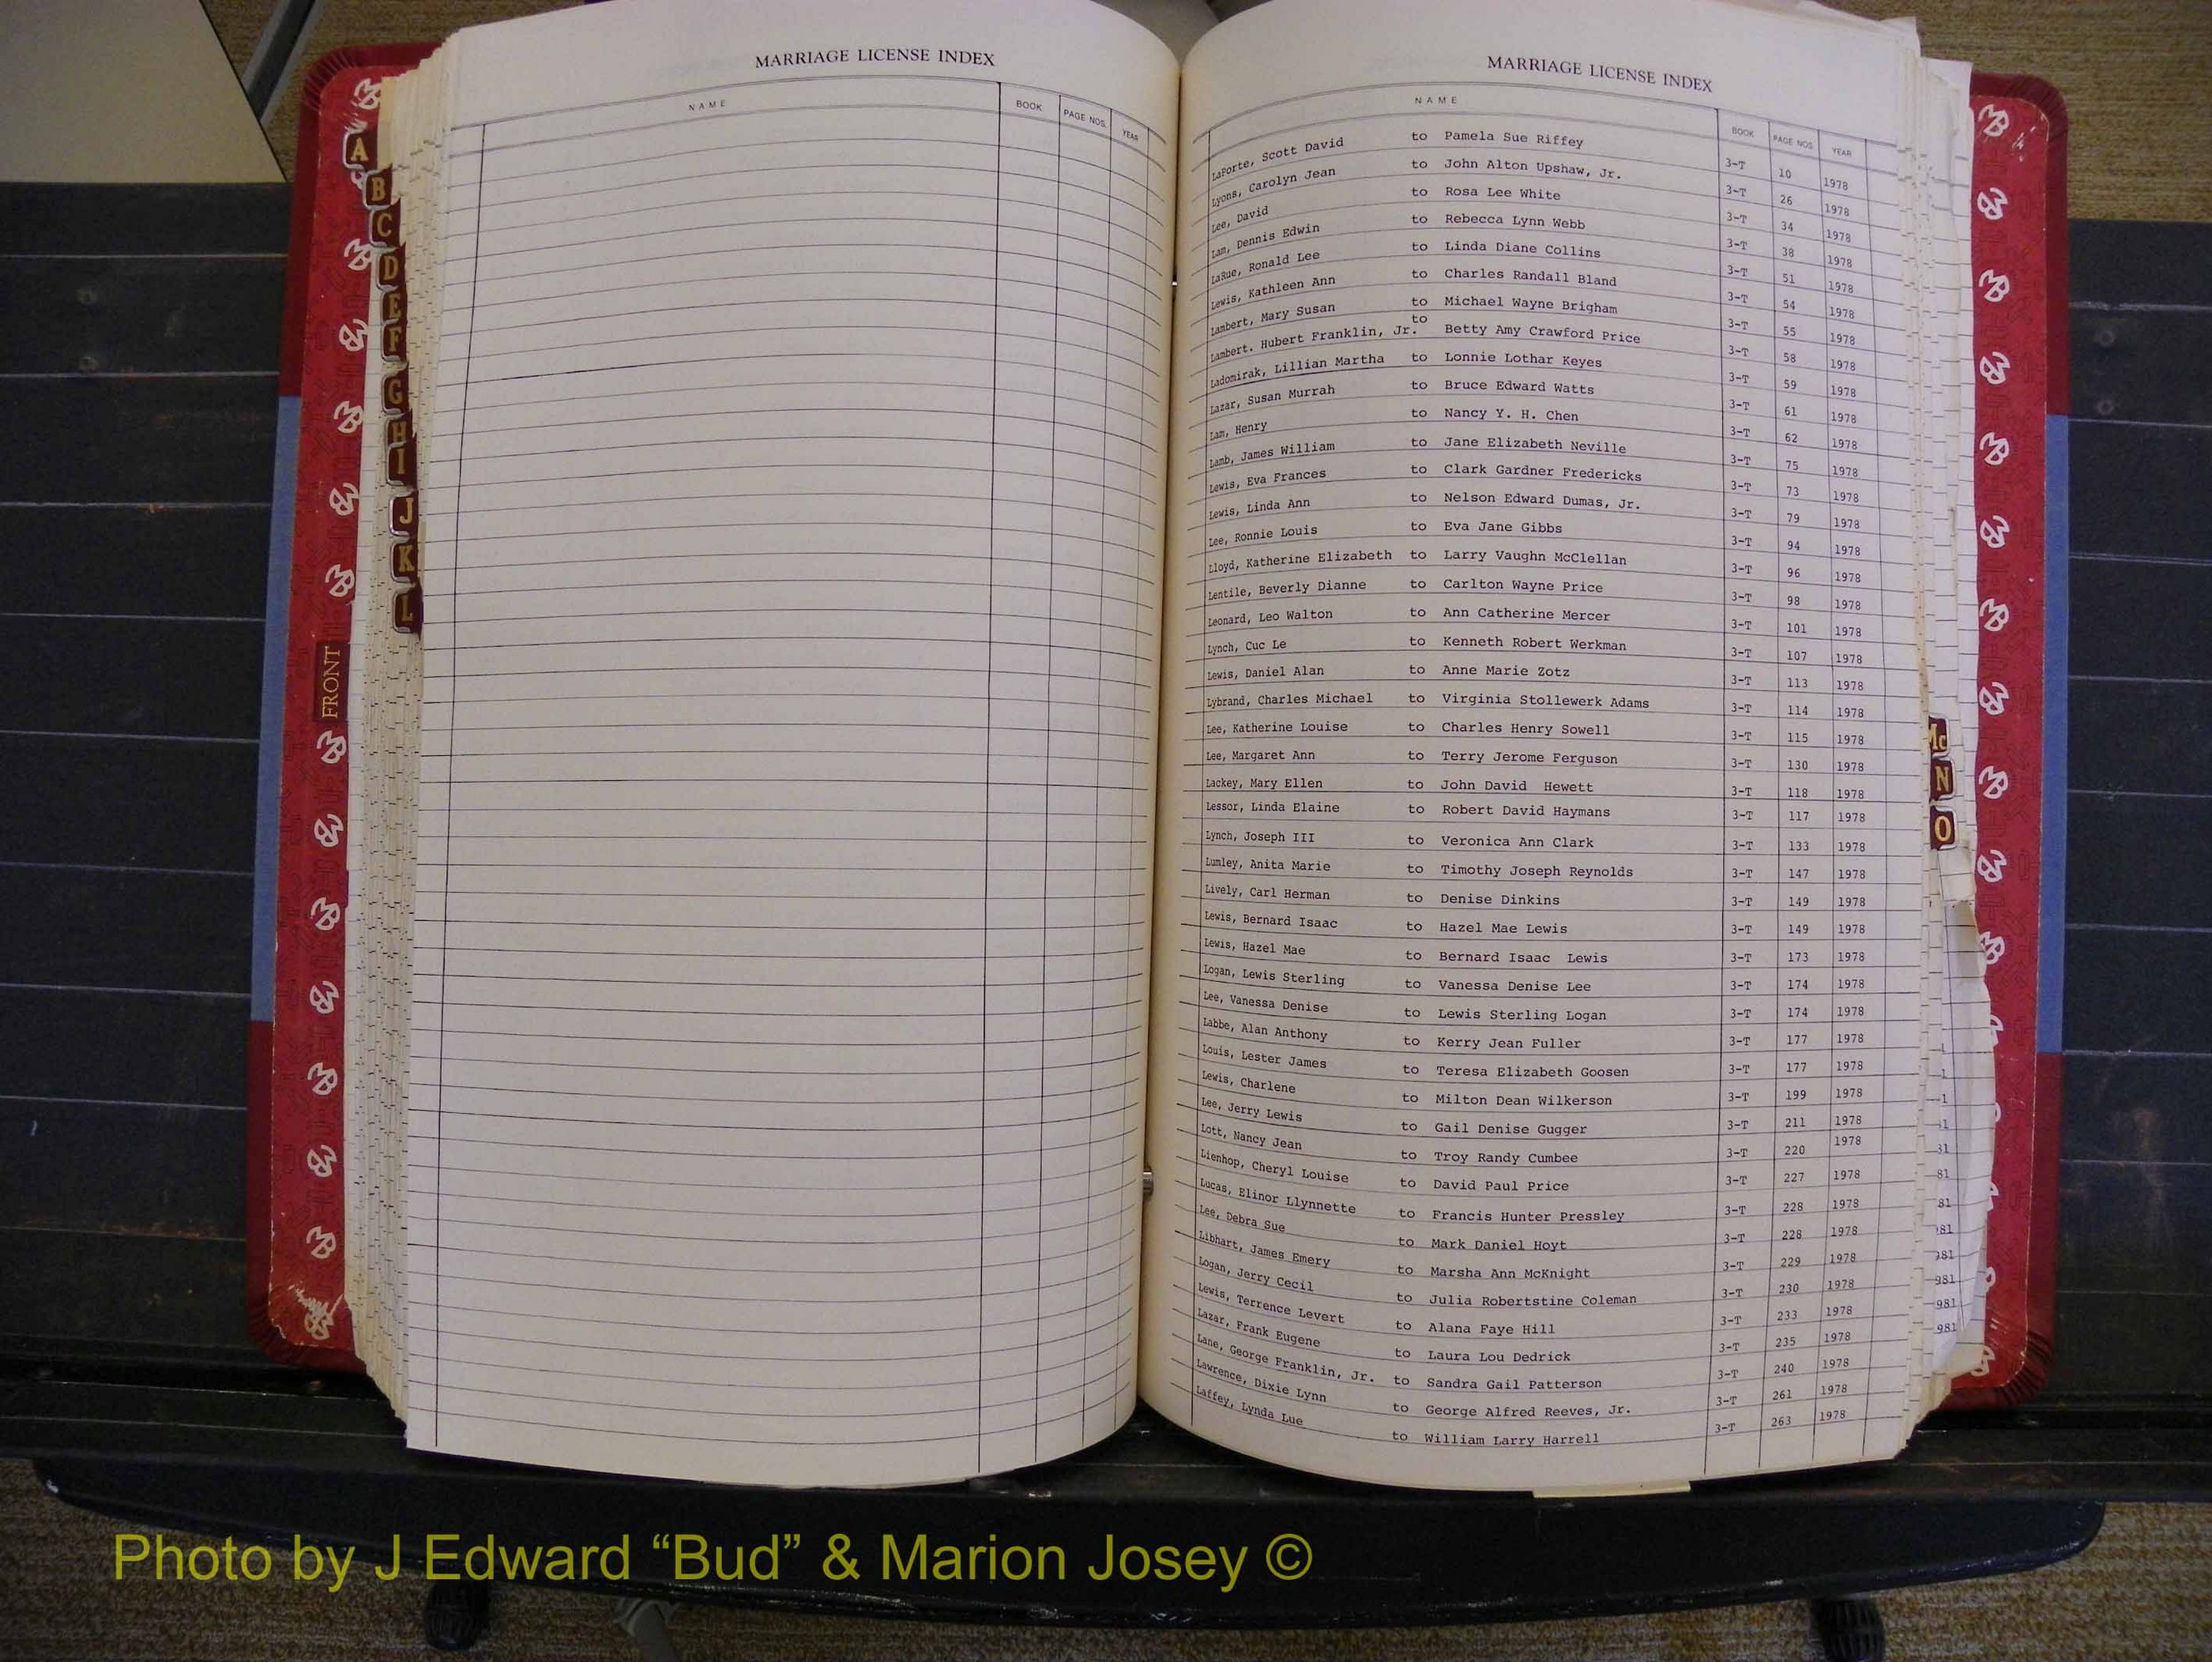 MARRIAGE LICENSE INDEX
NAME BOOK PAGE NOS. YEAR
A
B
C
D
E
F
G
H
I
J
K
L
FRONT
MARRIAGE LICENSE INDEX
NAME BOOK PAGE NOS. YEAR
LaPorte, Scott David to Pamela Sue Riffey 3-T 10 1978
Lyons, Carolyn Jean to John Alton Upshaw, Jr. 3-T 26 1978
Lee, David to Rosa Lee White 3-T 34 1978
Lam, Dennis Edwin to Rebecca Lynn Webb 3-T 38 1978
LaRue, Ronald Lee to Linda Diane Collins 3-T 51 1978
Lewis, Kathleen Ann to Charles Randall Bland 3-T 54 1978
Lambert, Mary Susan to Michael Wayne Brigham 3-T 55 1978
Lambert. Hubert Franklin, Jr. to Betty Amy Crawford Price 3-T 58 1978
Ladomirak, Lillian Martha to Lonnie Lothar Keyes 3-T 59 1978
Lazar, Susan Murrah to Bruce Edward Watts 3-T 61 1978
Lam, Henry to Nancy Y. H. Chen 3-T 62 1978
Lamb, James William to Jane Elizabeth Neville 3-T 75 1978
Lewis, Eva Frances to Clark Gardner Fredericks 3-T 73 1978
Lewis, Linda Ann to Nelson Edward Dumas, Jr. 3-T 79 1978
Lee, Ronnie Louis to Eva Jane Gibbs 3-T 94 1978
Lloyd, Katherine Elizabeth to Larry Vaughn McClellan 3-T 96 1978
Lentile, Beverly Dianne to Carlton Wayne Price 3-T 98 1978
Leonard, Leo Walton to Ann Catherine Mercer 3-T 101 1978
Lynch, Cuc Le to Kenneth Robert Werkman 3-T 107 1978
Lewis, Daniel Alan to Anne Marie Zotz 3-T 113 1978
Lybrand, Charles Michael to Virginia Stollewerk Adams 3-T 114 1978
Lee, Katherine Louise to Charles Henry Sowell 3-T 115 1978
Lee, Margaret Ann to Terry Jerome Ferguson 3-T 130 1978
Lackey, Mary Ellen to John David Hewett 3-T 118 1978
Lessor, Linda Elaine to Robert David Haymans 3-T 117 1978
Lynch, Joseph III to Veronica Ann Clark 3-T 133 1978
Lumley, Anita Marie to Timothy Joseph Reynolds 3-T 147 1978
Lively, Carl Herman to Denise Dinkins 3-T 149 1978
Lewis, Bernard Isaac to Hazel Mae Lewis 3-T 149 1978
Lewis, Hazel Mae to Bernard Isaac Lewis 3-T 173 1978
Logan, Lewis Sterling to Vanessa Denise Lee 3-T 174 1978
Lee, Vanessa Denise to Lewis Sterling Logan 3-T 174 1978
Labbe, Alan Anthony to Kerry Jean Fuller 3-T 177 1978
Louis, Lester James to Teresa Elizabeth Goosen 3-T 177 1978
Lewis, Charlene to Milton Dean Wilkerson 3-T 199 1978
Lee, Jerry Lewis to Gail Denise Gugger 3-T 211 1978
Lott, Nancy Jean to Troy Randy Cumbee 3-T 220 1978
Lienhop, Cheryl Louise to David Paul Price 3-T 227 1978
Lucas, Elinor Llynnette to Francis Hunter Pressley 3-T 228 1978
Lee, Debra Sue to Mark Daniel Hoyt 3-T 228 1978
Libhart, James Emery to Marsha Ann McKnight 3-T 229 1978
Logan, Jerry Cecil to Julia Robertstine Coleman 3-T 230 1978
Lewis, Terrence Levert to Alana Faye Hill 3-T 233 1978
Lazar, Frank Eugene to Laura Lou Dedrick 3-T 235 1978
Lane, George Franklin, Jr. to Sandra Gail Patterson 3-T 240 1978
Lawrence, Dixie Lynn to George Alfred Reeves, Jr. 3-T 261 1978
Laffey, Lynda Lue to William Larry Harrell 3-T 263 1978
Mc
N
O
81
81
81
981
981
981
Photo by J Edward “Bud” & Marion Josey ©